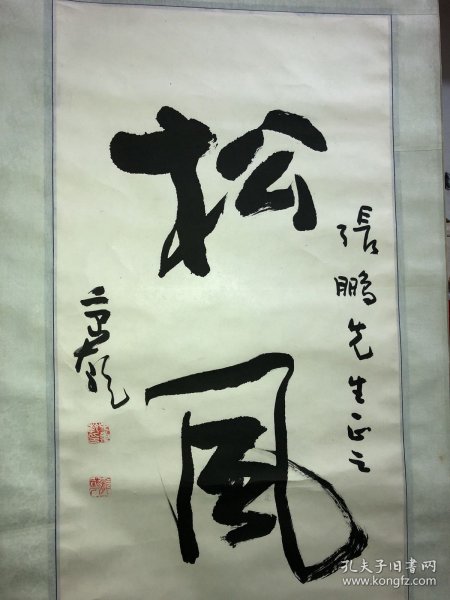 松風
張鵬先生正之
孔夫子旧书网
www.kongfz.com